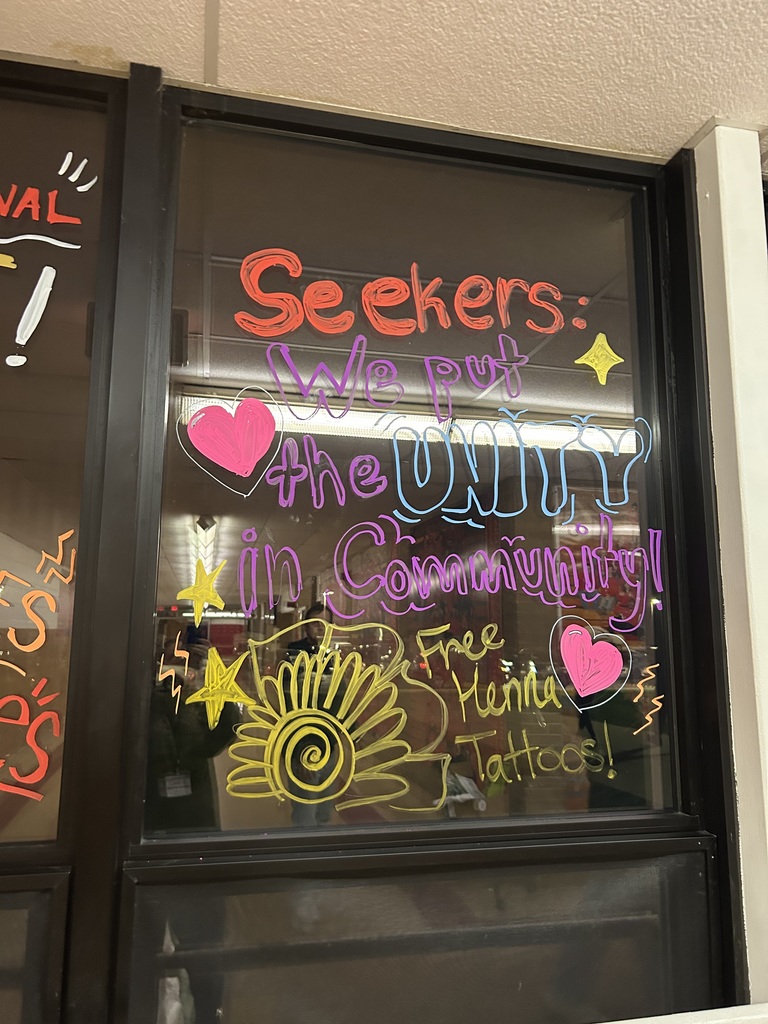 Seekers:
We put
the UNITY
in Community!
Free
Henna
Tattoos!